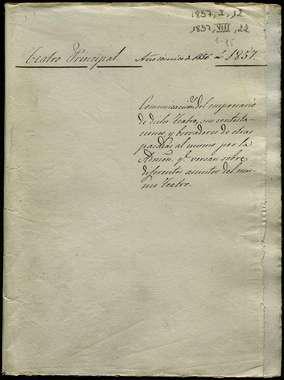 1857, I, 12
1857, VIII, 22
1-15
Teatro Principal Año cómico de 1856 à 1857.
Comunicaciones del empresario
de dicho Teatro, sus contesta-
ciones y borradores de otras
pasadas al mismo por la
Admon, q.e versan sobre
diferentes asuntos del mis-
mo Teatro.